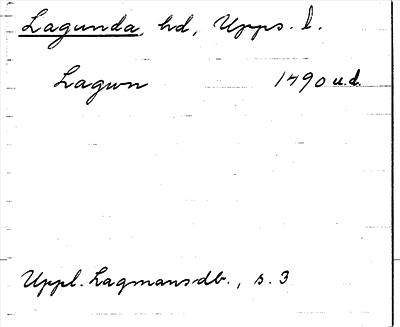 Lagunda, hd, Upps. l.
Lagwn 1490 u.d.
Uppl. Lagmansdb., s. 3